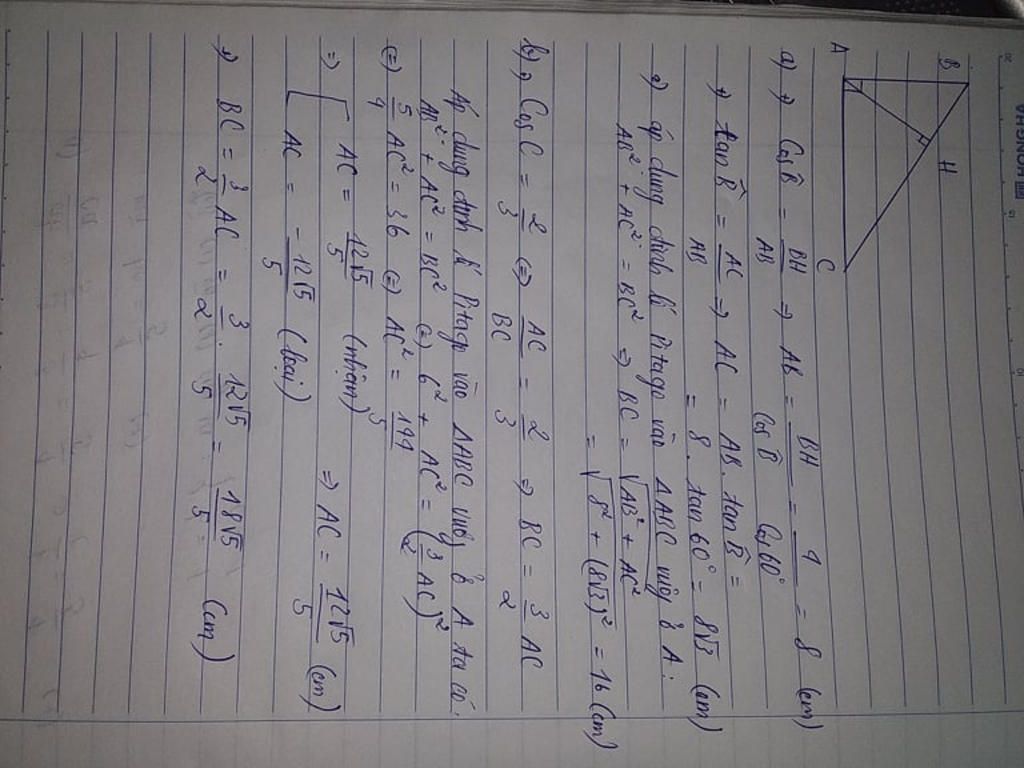 HONGHA
B
H
A
C
a) +) Cos B̂ = BH/AB ⇒ AB = BH/Cos B̂ = 4/Cos 60° = 8 (cm)
+) tan B̂ = AC/AB ⇒ AC = AB. tan B̂ =
= 8. tan 60° = 8√3 (cm)
+) áp dụng định lí Pitago vào ΔABC vuông ở A:
AB² + AC² = BC² ⇒ BC = √AB² + AC²
= √8² + (8√3)² = 16 (cm)
b) +) Cos C = 2/3 (=) AC/BC = 2/3 ⇒ BC = 3/2 AC
Áp dụng định lí Pitago vào ΔABC vuông ở A ta có:
AB² + AC² = BC² (=) 6² + AC² = (3/2 AC)²
(=) 5/4 AC² = 36 (=) AC² = 144/5
=) [ AC = 12√5/5 (nhận) ⇒ AC = 12√5/5 (cm)
AC = -12√5/5 (loại)
+) BC = 3/2 AC = 3/2 . 12√5/5 = 18√5/5 (cm)